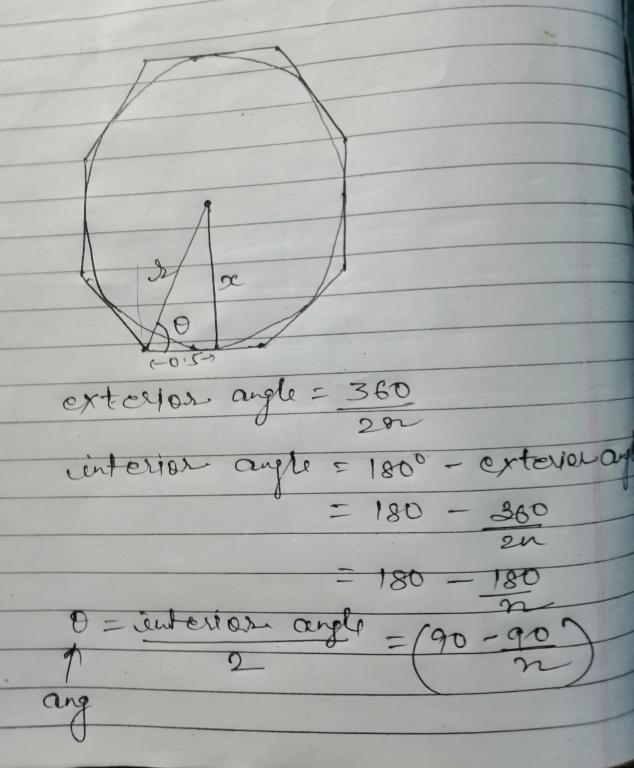 r
x
θ
←0.5→
exterior angle = 360/2n
interior angle = 180° - exterior ang
= 180 - 360/2n
= 180 - 180/n
θ = interior angle/2 = (90 - 90/n)
↑
ang